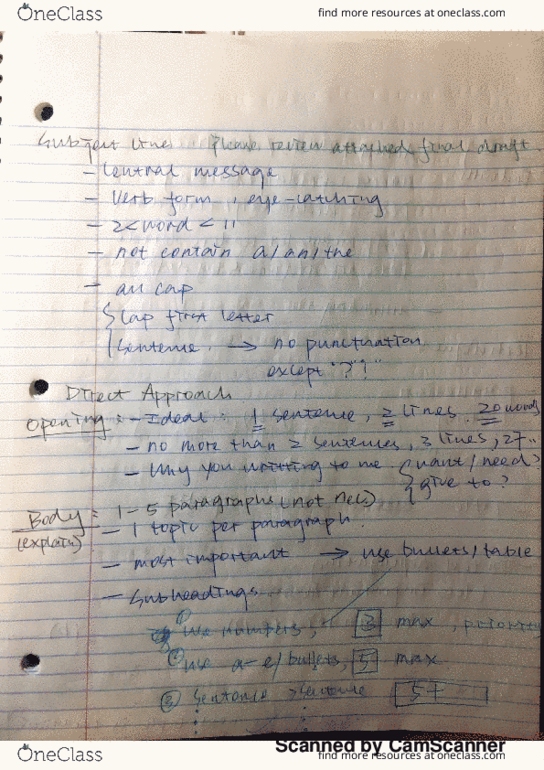 OneClass
find more resources at oneclass.com
Subject line: Please review attached final draft
- Central message
- Verb form, eye-catching
- 2<word<11
- not contain a/an/the
- all cap
{ Cap first letter
sentence. → no punctuation
except "?"
Direct Approach
Opening: - Ideal: 1 sentence, 2 lines. 20 words
- no more than 2 sentences, 3 lines, 27..
- Why you writting to me { want/need?
give to?
Body: 1-5 paragraphs (not nec.)
(explain) - 1 topic per paragraph.
- most important → use bullets/table
- Subheadings.
① use numbers, 3 max, priority
② use a-e/bullets, 5 max
③ Sentence >sentence 5+
Scanned by CamScanner
OneClass
find more resources at oneclass.com